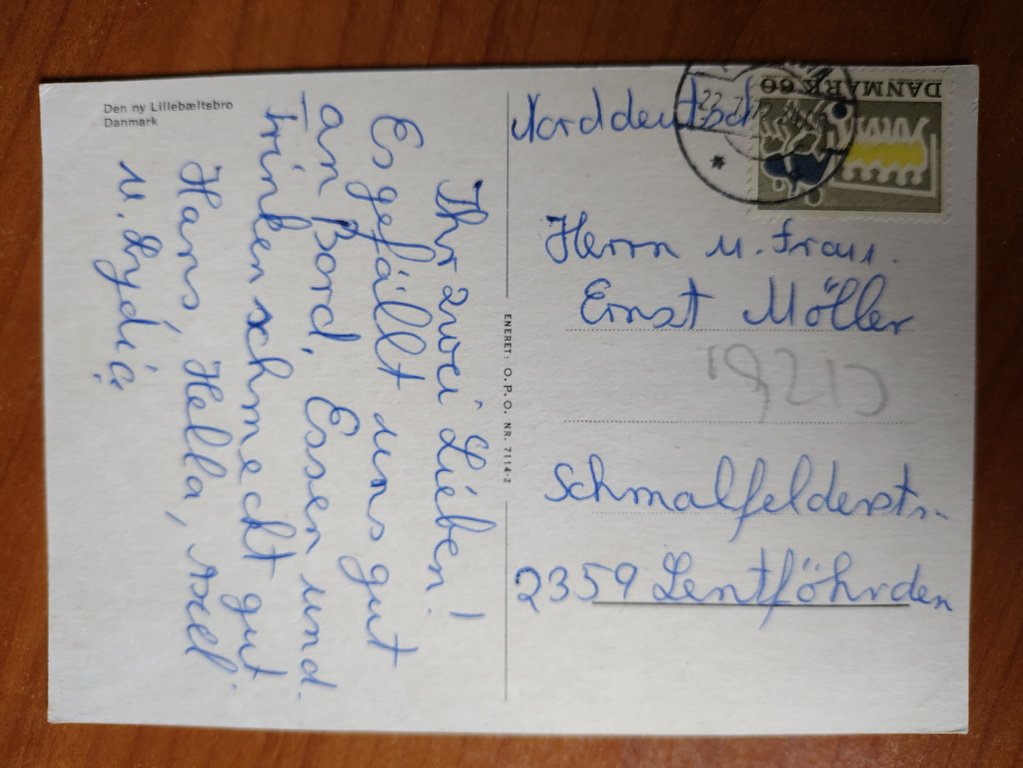 Den ny Lillebæltsbro
Danmark
Ihr zwei Lieben!
Es gefällt uns gut
an Bord, Essen und
trinken schmeckt gut
Hans, Hella, Axel
u. Lydia
ENERET: O.P.O. NR. 7114-2
DANMARK 60
Norddeutschl
Herrn u. Frau.
Ernst Möller
Schmalfelderstr.
2359 Lentföhrden